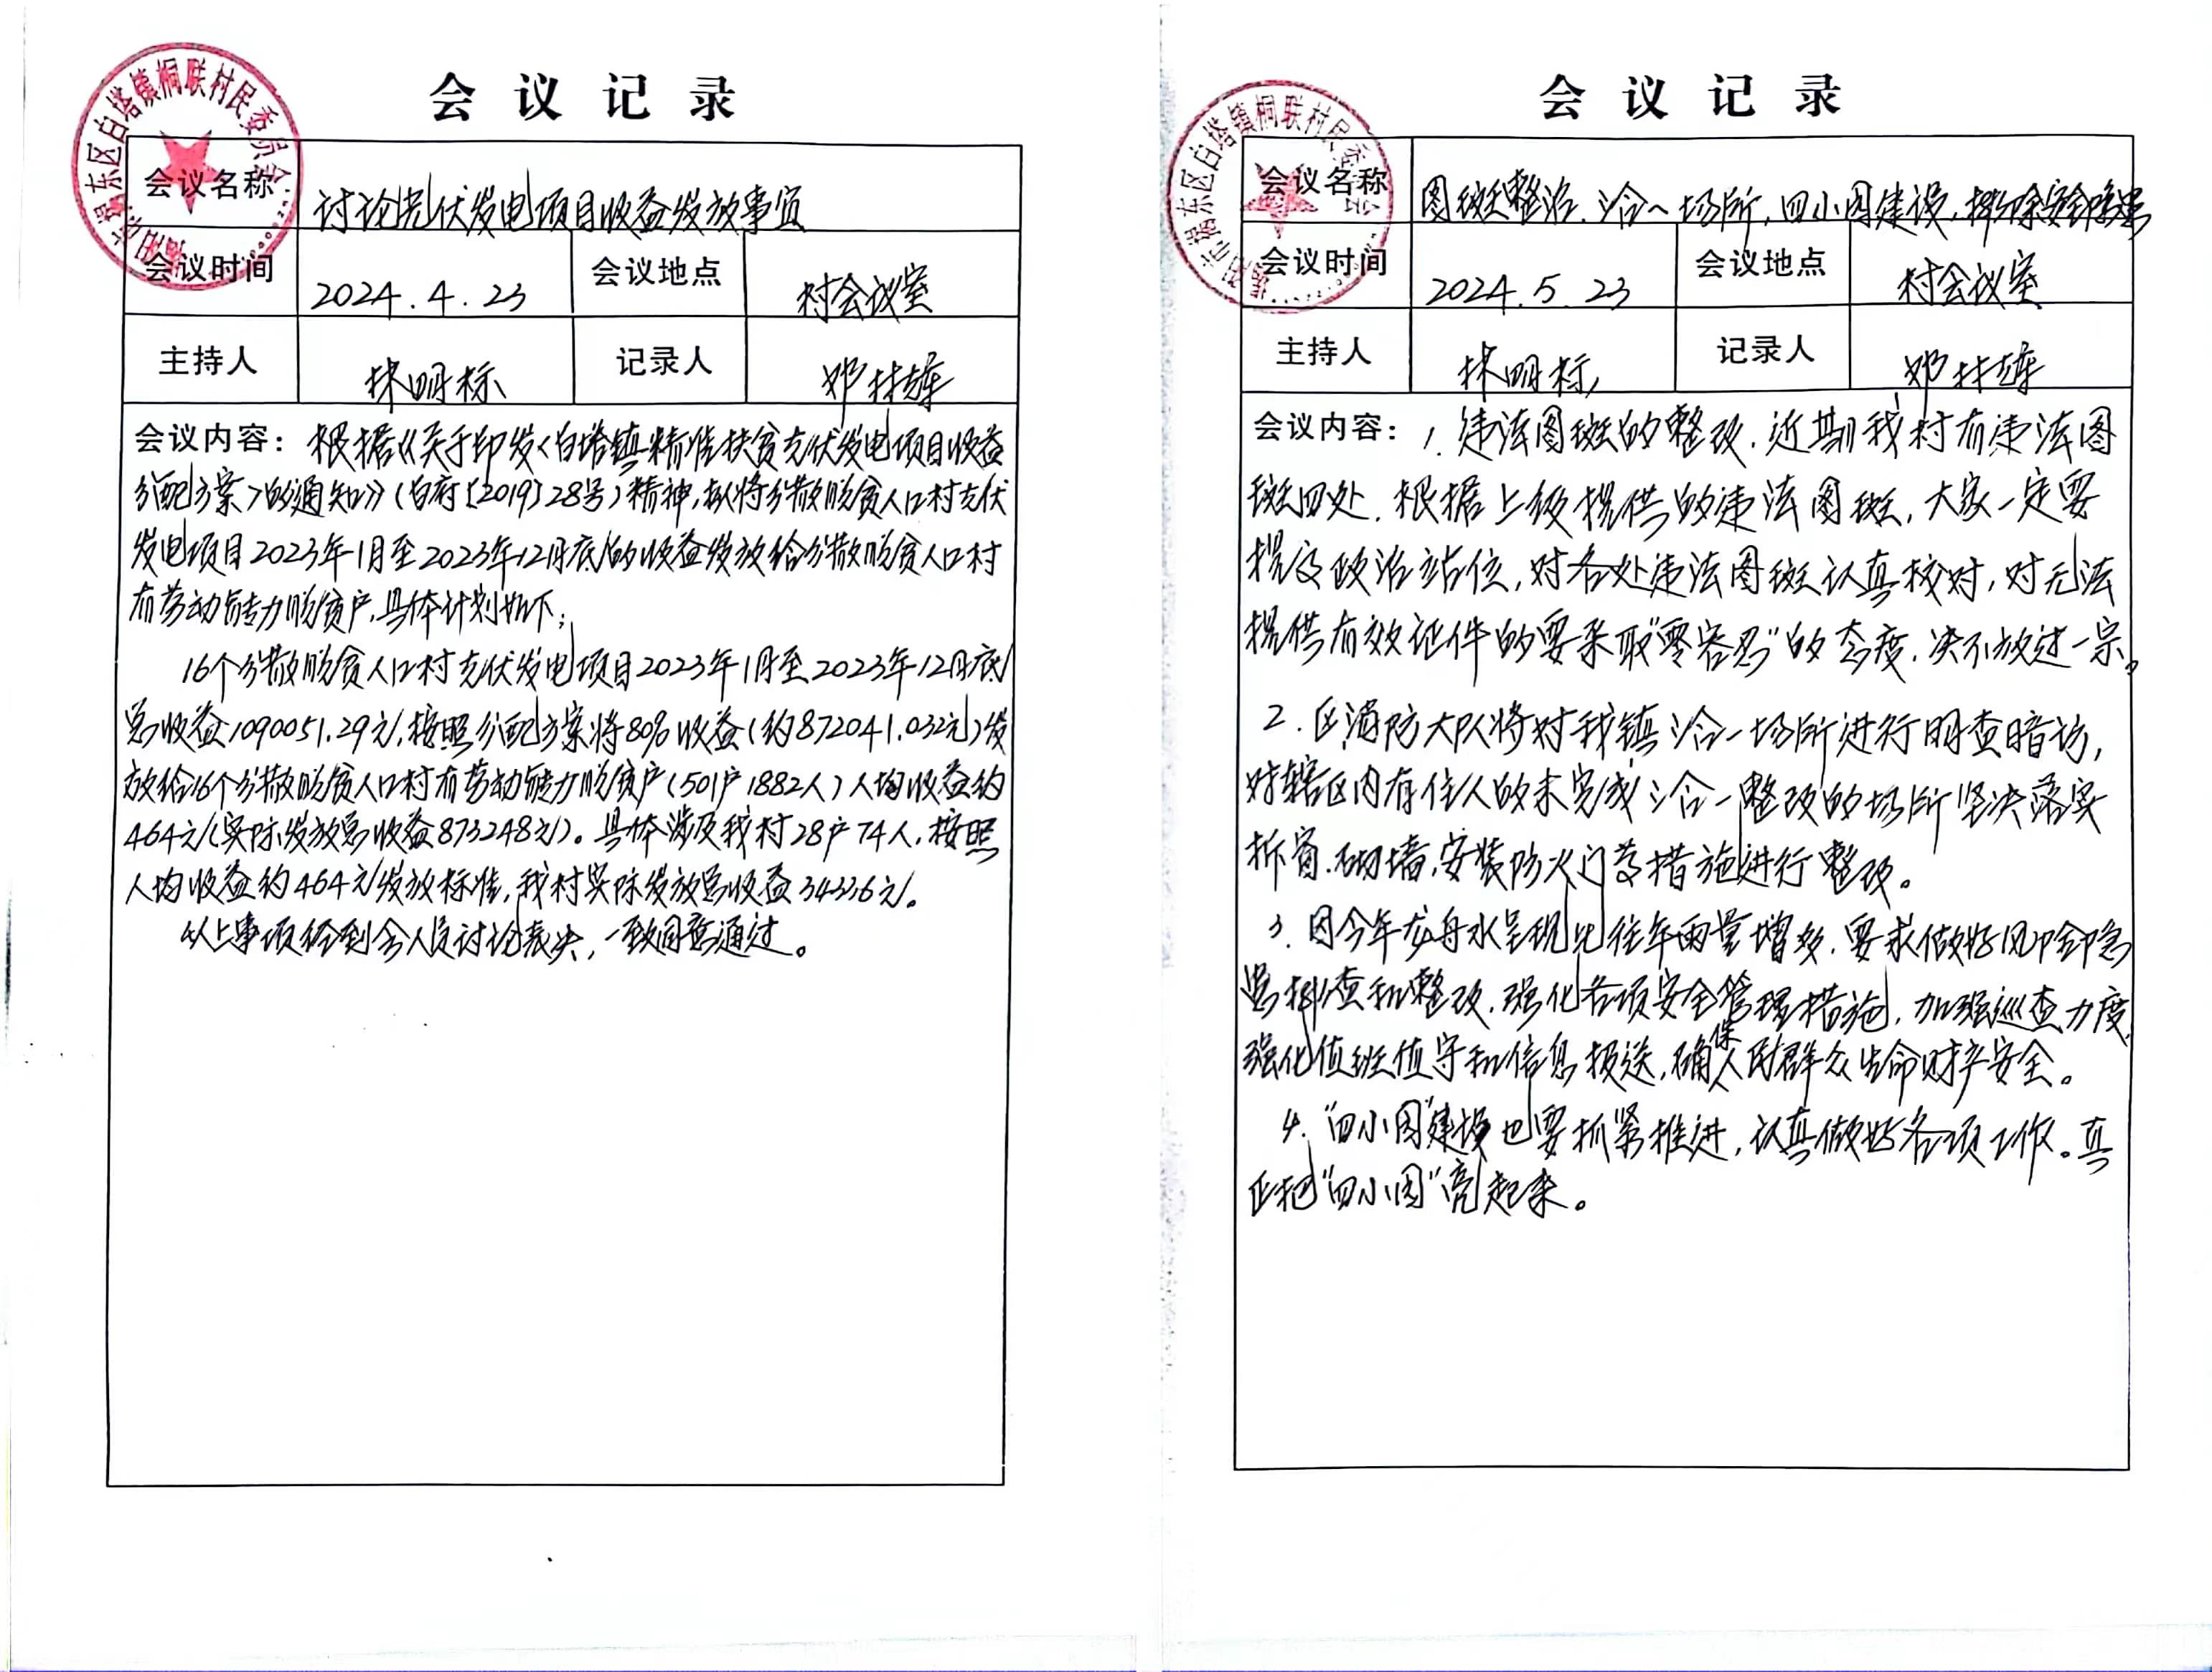 会议记录
揭阳市揭东区白塔镇桐联村民委员会
会议名称
讨论光伏发电项目收益发放事宜
会议时间
2024.4.23
会议地点
村会议室
主持人
林明标
记录人
邓林雄
会议内容：根据《关于印发<白塔镇精准扶贫光伏发电项目收益
分配方案>的通知》（白府〔2019〕28号）精神，拟将分散脱贫人口村光伏
发电项目2023年1月至2023年12月底的收益发放给分散脱贫人口村
有劳动能力脱贫户，具体计划如下：
16个分散脱贫人口村光伏发电项目2023年1月至2023年12月底
总收益1090051.29元，按照分配方案将80%收益（约872041.032元）发
放给16个分散脱贫人口村有劳动能力脱贫户（501户1882人）人均收益约
464元（实际发放总收益873248元）。具体涉及我村28户74人，按照
人均收益约464元发放标准，我村实际发放总收益34336元。
以上事项经到会人员讨论表决，一致同意通过。
会议记录
揭阳市揭东区白塔镇桐联村民委员会
会议名称
图斑整治、三合一场所、四小园建设、排除安全隐患
会议时间
2024.5.23
会议地点
村会议室
主持人
林明标
记录人
邓林雄
会议内容：1.违法图斑的整改，近期我村有违法图
斑四处，根据上级提供的违法图斑，大家一定要
提高政治站位，对各处违法图斑认真核对，对无法
提供有效证件的要采取“零容忍”的态度，决不放过一宗。
2.区消防大队将对我镇三合一场所进行明查暗访，
对辖区内有住人的未完成三合一整改的场所坚决落实
拆育、砌墙、安装防火门等措施进行整改。
3.因今年龙舟水呈现比往年雨量增多，要求做好风险隐
患排查和整改，强化各项安全管理措施，加强巡查力度，
强化值班值守和信息报送，确保人民群众生命财产安全。
4.“四小园”建设也要抓紧推进，认真做好各项工作。真
正把“四小园”亮起来。